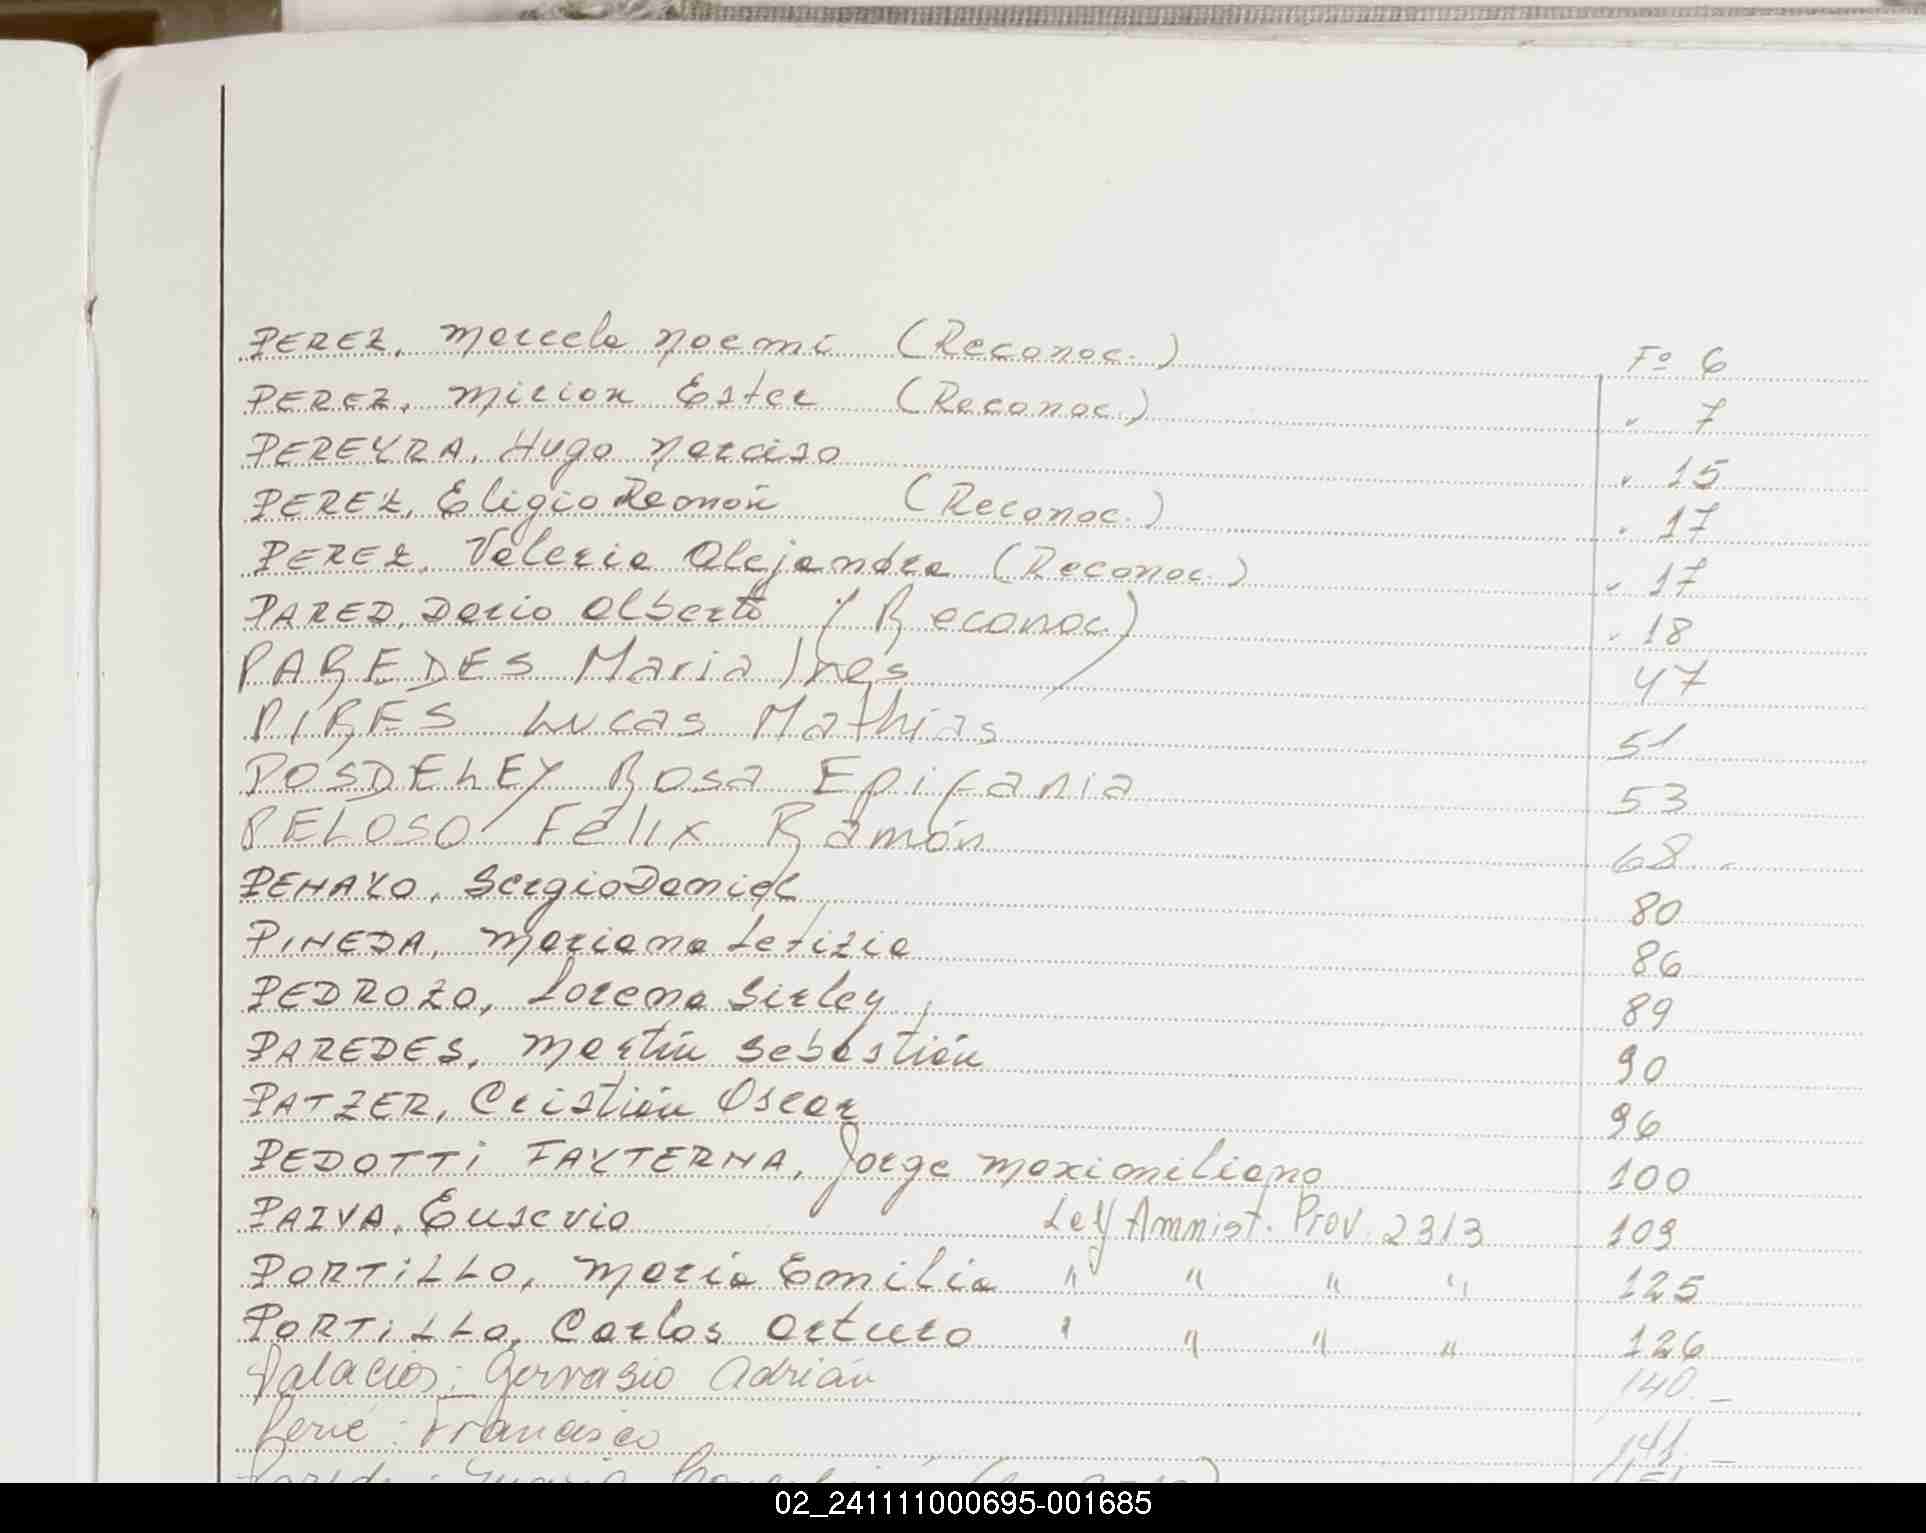 PEREZ, Marcela Noemi (Reconoc.) Fº 6
PEREZ, Mirian Ester (Reconoc.) " 7
PEREYRA, Hugo Narciso " 15
PEREZ, Eligio Ramón (Reconoc.) " 17
PEREZ, Valeria Alejandra (Reconoc.) " 17
PARED, Dario Alberto (Reconoc) " 18
PAREDES Maria Ines 47
PIRES Lucas Mathias 51
POSDELEY Rosa Epifania 53
PELOSO Félix Ramón 68
PENAYO, Sergio Daniel 80
PINEDA, Mariana Letizia 86
PEDROZO, Lorena Sirley 89
PAREDES, Martín Sebastián 90
PATZER, Cristián Oscar 96
PEDOTTI FAYTERNA, Jorge Maximiliano 100
PAIVA, Eusevio Ley Amnist. Prov. 2313 109
PORTILLO, María Emilia " " " " 125
PORTILLO, Carlos Arturo " " " " 126
Palacios: Gervasio Adrián 140.-
Perié: Francisco 141.-
02_241111000695-001685